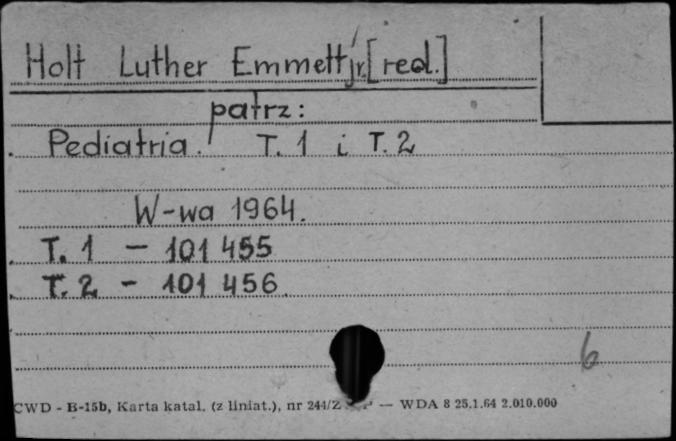 Holt Luther Emmett jr. [red.]
patrz:
Pediatria. T. 1 i T. 2
W-wa 1964.
T. 1 — 101 455
T. 2 - 101 456
6
CWD - B-15b, Karta katal. (z liniat.), nr 244/Z — WDA 8 25.1.64 2.010.000